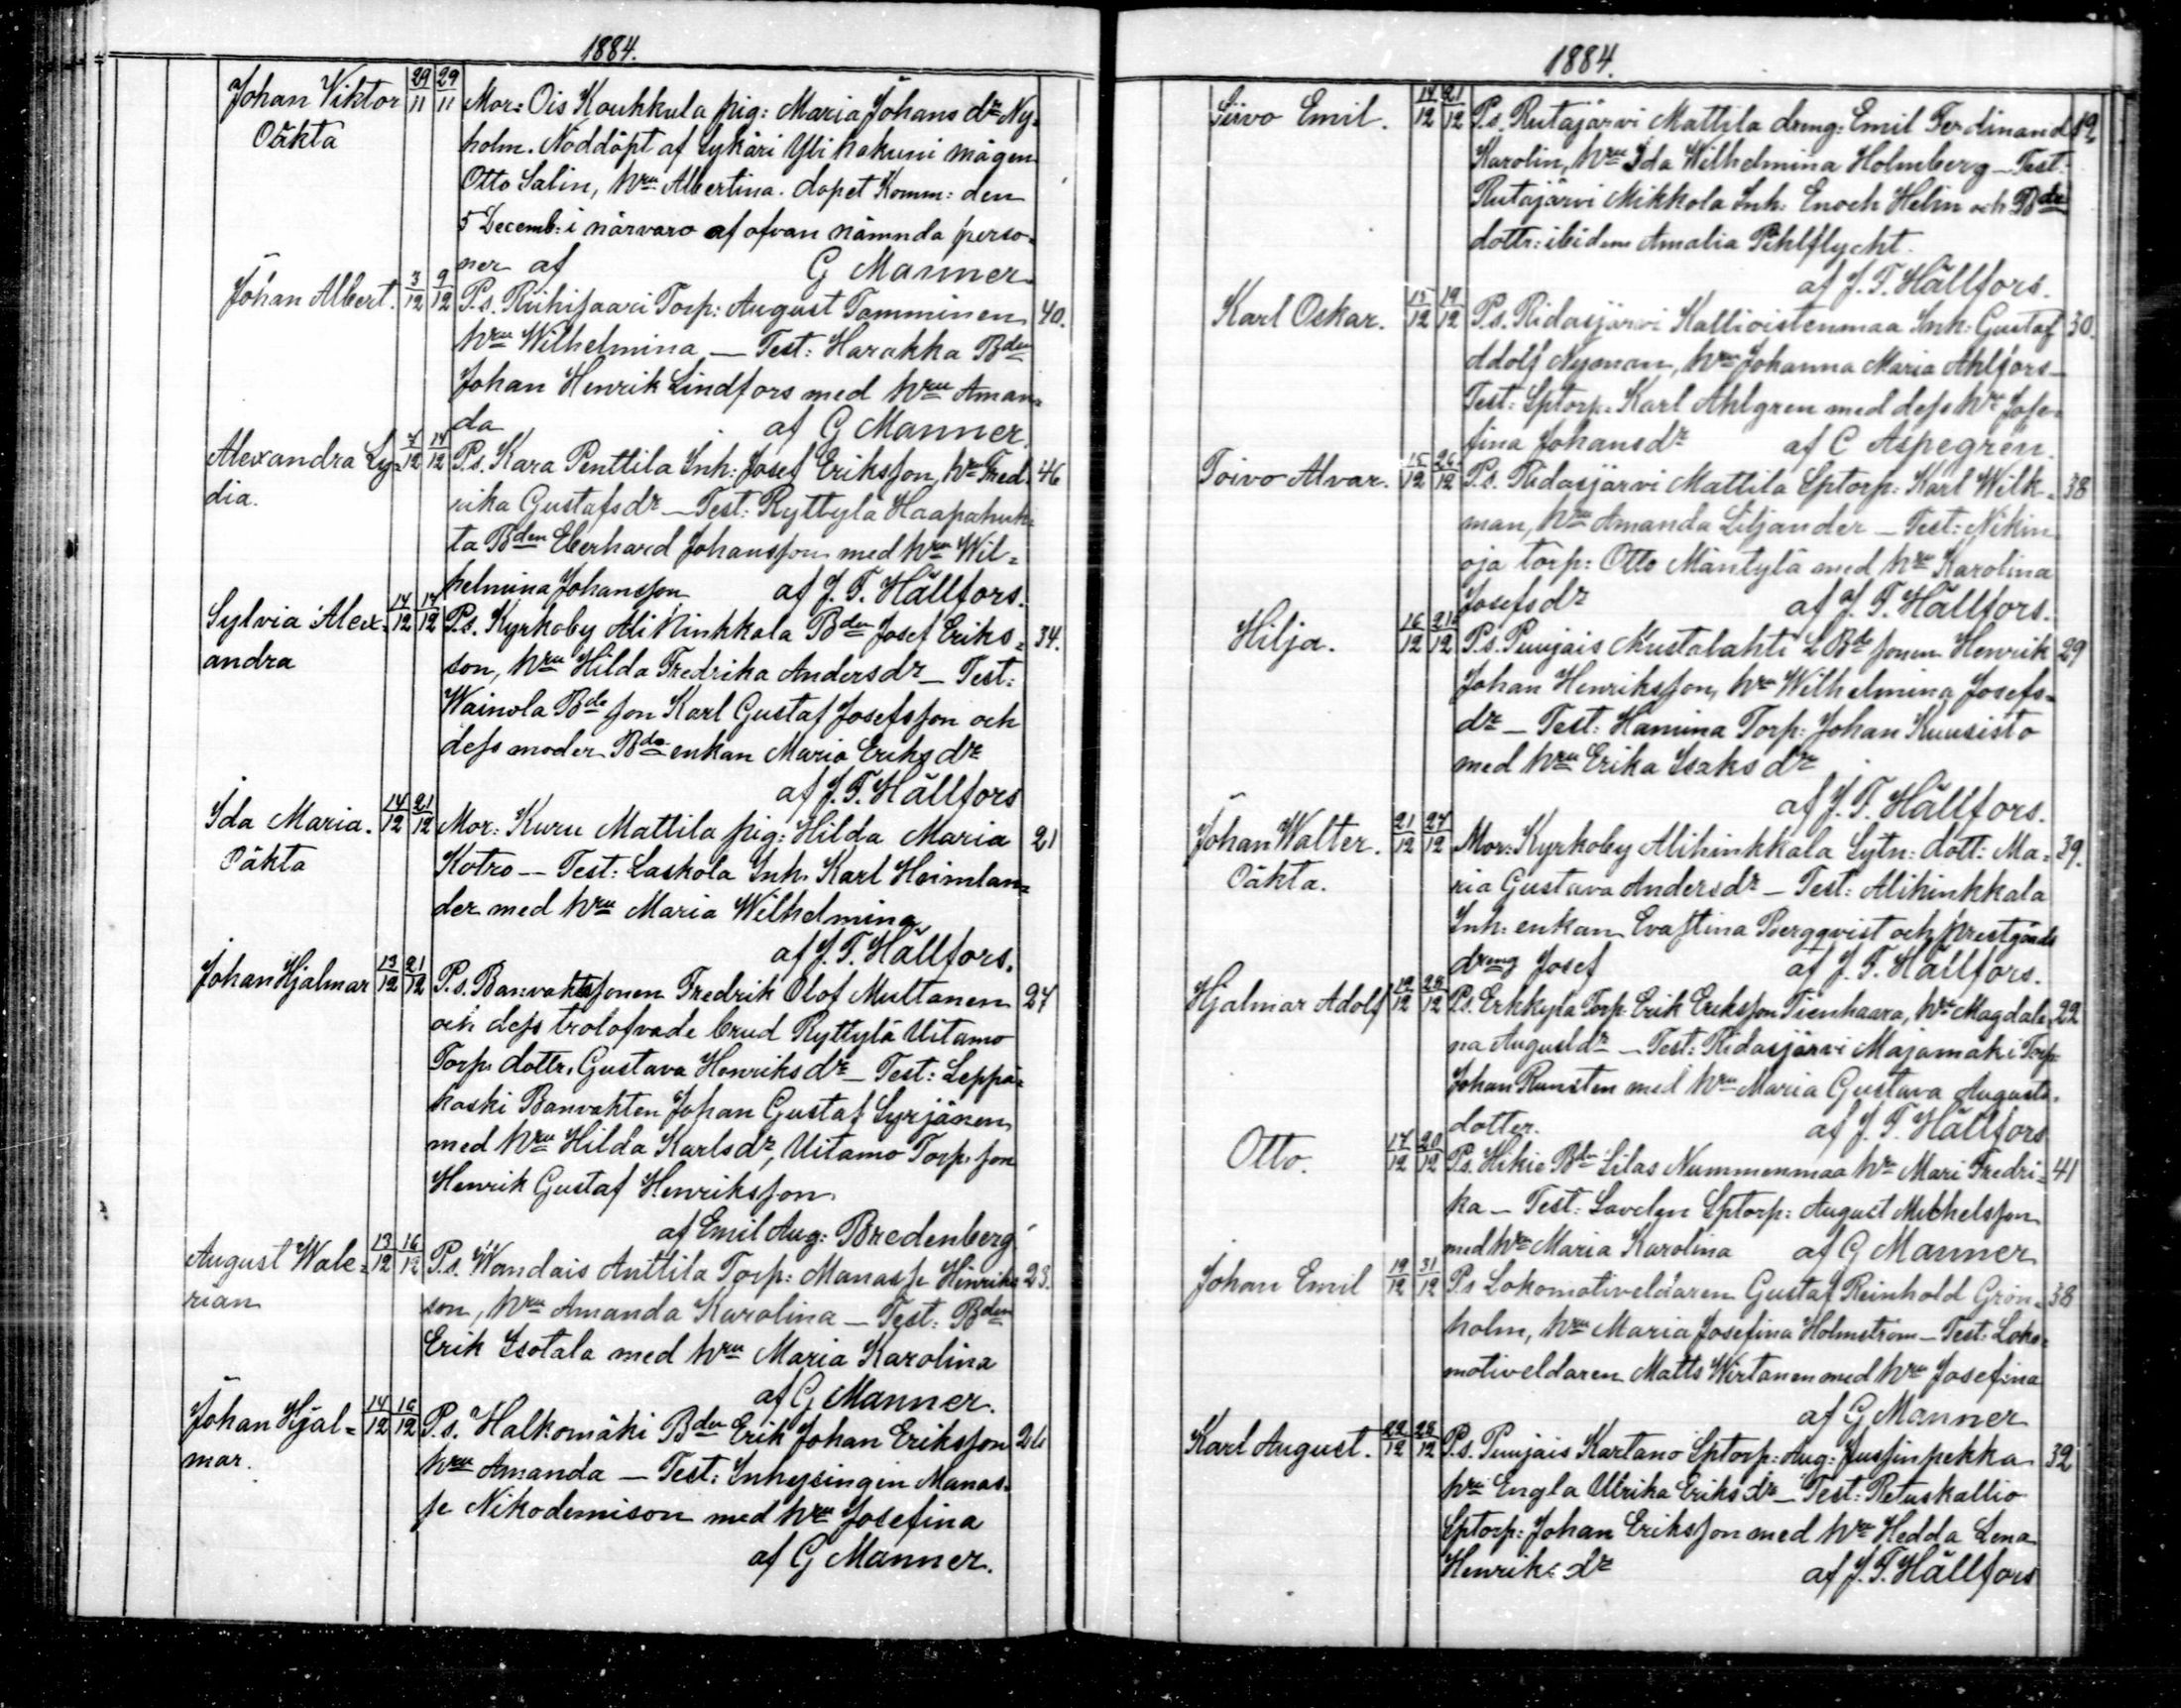 1884.
Johan Viktor 29/11 29/11 Mor: Ois Koukkula pig: Maria Johans dr Ny=
Oäkta holm. Nöddöpt af Sykäri Yli hakuni mågen
Otto Salin, hru Albertina. dopet Komm: den
5 Decemb: i närvaro af ofvan nämnda perso-
ner af G Manner
Johan Albert. 3/12 9/12 P.s. Riihisaari Torp: August Tamminen 40.
hru Wilhelmina — Test: Harakka Bden
Johan Henrik Lindfors med hru Aman=
da af G Manner.
Alexandra Ly= 7/12 14/12 P.s. Kara Penttila Inh: Josef Eriksson, hru Fred 46
dia. rika Gustafsdr — Test: Ryttylä Haapahuh=
ta Bden Eberhard Johansson med hru Wil=
helmina Johansson af J. F. Hällfors.
Sylvia Alex= 14/12 14/12 P.s. Kyrkoby Ali Hinkkala Bden Josef Eriks= 34.
andra son, hru Hilda Fredrika Andersdr — Test:
Wainola Bde son Karl Gustaf Josefsson och
dess moder Bde enkan Maria Eriks dr
af J. F. Hällfors
Ida Maria. 14/12 21/12 Mor: Kuru Mattila pig: Hilda Maria 21
Oäkta Kotro — Test: Laskola Inh. Karl Heimlan=
der med hru Maria Wilhelmina
af J. F. Hällfors.
Johan Hjalmar 13/12 21/12 P.s. Banvaktssonen Fredrik Olof Multanen 27
och dess trolofvade brud Ryttylä Uitamo
Torp. dottr. Gustava Henriks dr — Test: Leppä=
koski Banvakten Johan Gustaf Syrjänen
med hru Hilda Karlsdr, Uitamo Torp. son
Henrik Gustaf Henriksson
af Emil Aug: Bredenberg
August Wale= 13/12 16/12 P.s. Wandais Anttila Torp: Manasse Hinriks 23.
rian son, hru Amanda Karolina — Test: Bden
Erik Isotala med hru Maria Karolina
af G Manner.
Johan Hjal= 14/12 16/12 P.s. Halkomäki Bden Erik Johan Eriksson 26
mar. hru Amanda — Test: Inhysingen Manas=
se Nikodemison med hru Josefina
af G Manner.
1884.
Siivo Emil. 14/12 21/12 P.s. Rutajärvi Mattila dreng: Emil Ferdinand 19
Karolin, hru Ida Wilhelmina Holmberg — Test:
Rutajärvi Mikkola Inh: Enoch Helin och Bde
dottr: ibidem Amalia Pihlflycht.
af J. F. Hällfors.
Karl Oskar. 15/12 19/12 P.s. Ridasjärvi Kallioistenmaa Inh: Gustaf 30.
Adolf Nyman, hru Johanna Maria Ahlfors —
Test: Sptorp: Karl Ahlgren med dess hru Jose=
fina Johansdr af C Aspegren.
Toivo Alvar. 15/12 26/12 P.s. Ridasjärvi Mattila Sptorp: Karl Wilk= 38
man, hru Amanda Liljander — Test: Nikin
oja torp: Otto Mäntylä med hru Karolina
Josefsdr af J. F. Hällfors.
Hilja. 16/12 21/12 P.s. Puujais Mustalahti L Bde sonen Henrik 29
Johan Henriksson, hru Wilhelmina Josefs=
dr — Test: Hamina Torp: Johan Kuusisto
med hru Erika Isaks dr
af J. F. Hällfors.
Johan Walter. 21/12 27/12 Mor: Kyrkoby Alihinkkala Sytn: dott: Ma= 39.
Oäkta. ria Gustava Andersdr — Test: Alihinkkala
Inh: enkan Eva Stina Bergqvist och prestgårds
dreng Josef af J. F. Hällfors.
Hjalmar Adolf 19/12 28/12 P.s. Erkkylä Torp: Erik Eriksson Tienhaara, hru Magdale= 22
na Augustdr — Test: Ridasjärvi Majamäki Torp
Johan Runsten med hru Maria Gustava Augusts=
dotter. af J. F. Hällfors
Otto. 17/12 20/12 P.s. Hikie Bden Silas Nummenmaa hru Mari Fredri= 41
ka — Test: Sptorp: August Michelsson
med hru Maria Karolina af G Manner
Johan Emil 19/12 31/12 P.s Lokomotiveldaren Gustaf Reinhold Grön= 38
holm, hru Maria Josefina Holmström — Test: Loko=
motiveldaren Matts Wirtanen med hru Josefina
af G Manner
Karl August. 22/12 28/12 P.s. Puujais Kartano Sptorp: Aug: Jussinpekka 32
hru Engla Ulrika Eriks dr — Test: Retuskallio
Sptorp: Johan Eriksson med hru Hedda Lena
Henriks dr af J. F. Hällfors